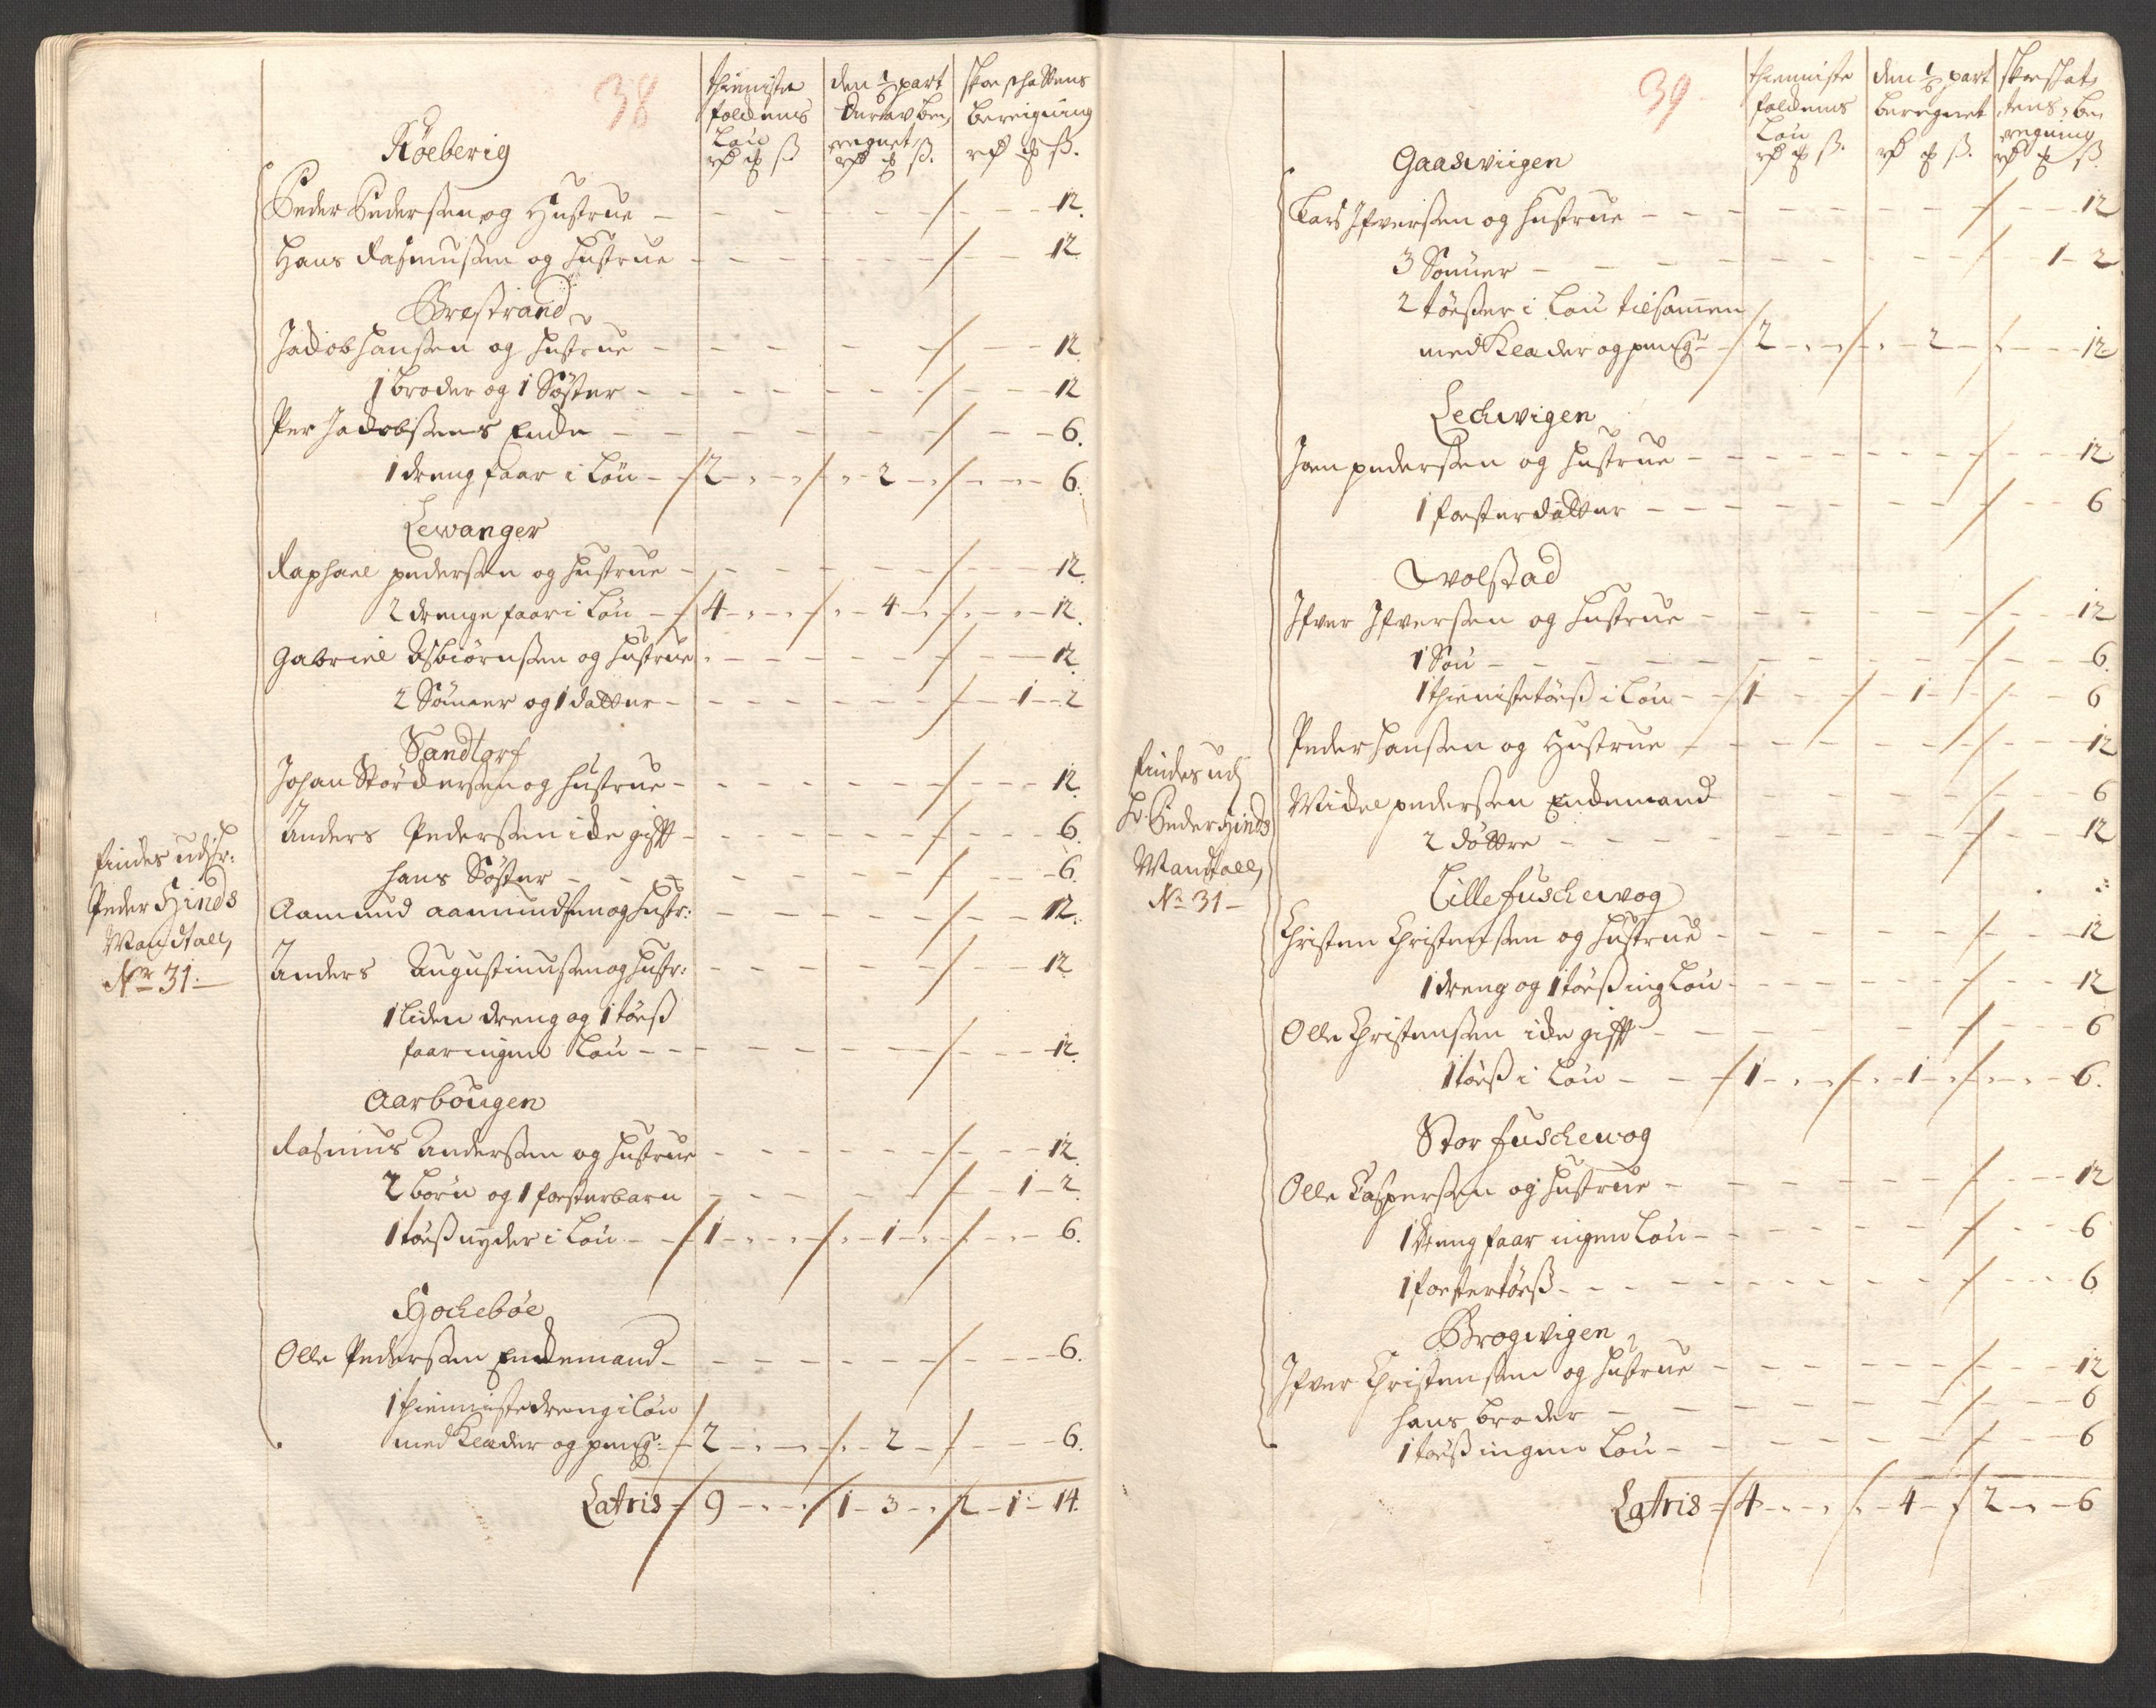 38
thieniste
foldems
Løn
rd ort ß
den 1/6 part
derav be,
regnet
rd ort ß.
skoe schattens
bereigning
rd ort ß.
Røeberig
Peder Pedersen og Hustrue - 12.
Hans Rasmusen og Hustrue - 12
Grestrand
Jacob Hansen og Hustrue - 12
1 broder og 1 Søster - 12
Per Jacobsens Encke - 6.
1 dreng faar i Løn - 2 - 2 - 6.
Lewanger
Raphael pedersen og Hustrue - 12.
2 drenge faar i Løn - 4 - 4 - 12.
Gabriel Asbiørnsen og Hustrue - 12
2 Sønner og 1 datter - 1 - 2
Sandtorf
Johan Størckersen og Hustrue - 12.
Anders Pedersen icke gifft - 6.
hans Søster - 6.
Aamund aamundsen og Hustr: - 12.
Anders Augustinusen og Hustr: - 12
1 liden dreng og 1 tøeß
faar ingen Løn - 12.
Aarbougen
Rasmus Andersen og Hustrue - 12.
2 børn og 1 fosterbarn - 1 - 2.
1 tøeß nyder i Løn - 1 - 1 - 6.
Hochebøe
Olle Pedersen Enckemand - 6.
1 thienniste dreng i Løn
med Klæder og peng: - 2 - 2 - 6.
Latris - 9 - 1 - 3 - 2 - 1 - 14.
findes udj Hr:
Peder Hinds
Mandtall,
No 31.
39
thienniste
foldems
Løn
rd ort ß.
den 1/6 part
beregnet
rd ort ß.
skoeskat,
tens be,
regning
rd ort ß
Gaasviigen
Lars Ifversen og Hustrue - 12
3 Sønner - 1 - 2
2 tøeßer i Løn tilsamen
med Klæder og peng - 2 - 2 - 12
Lechvigen
Joen pedersen og Hustrue - 12
1 fosterdatter - 6
Twolstad
Ifver Ifversen og Hustrue - 12
1 Søn - 6.
1 thienistetøeß i Løn - 1 - 1 - 6
Peder Hansen og Hustrue - 12
Mickel pedersen Enckemand - 6
2 døttre - 12
Lille fuschevog
Christen Christensen og Hustrue - 12
1 dreng og 1 tøeß ing Løn - 12
Olle Christensen icke gifft - 6
1 tøeß i Løn - 1 - 1 - 6.
Stor fuschewog
Olle Caspersen og Hustrue - 12
1 dreng faar ingen Løn - 6
1 fostertøeß - 6
Brogwigen
Ifver Christensen og Hustrue - 12
hans broder - 6
1 tøeß ingen Løn - 6
Latris - 4 - 4 - 2 - 6
findes udj
Hr. Peder Hinds
Mandtall,
No 31 -